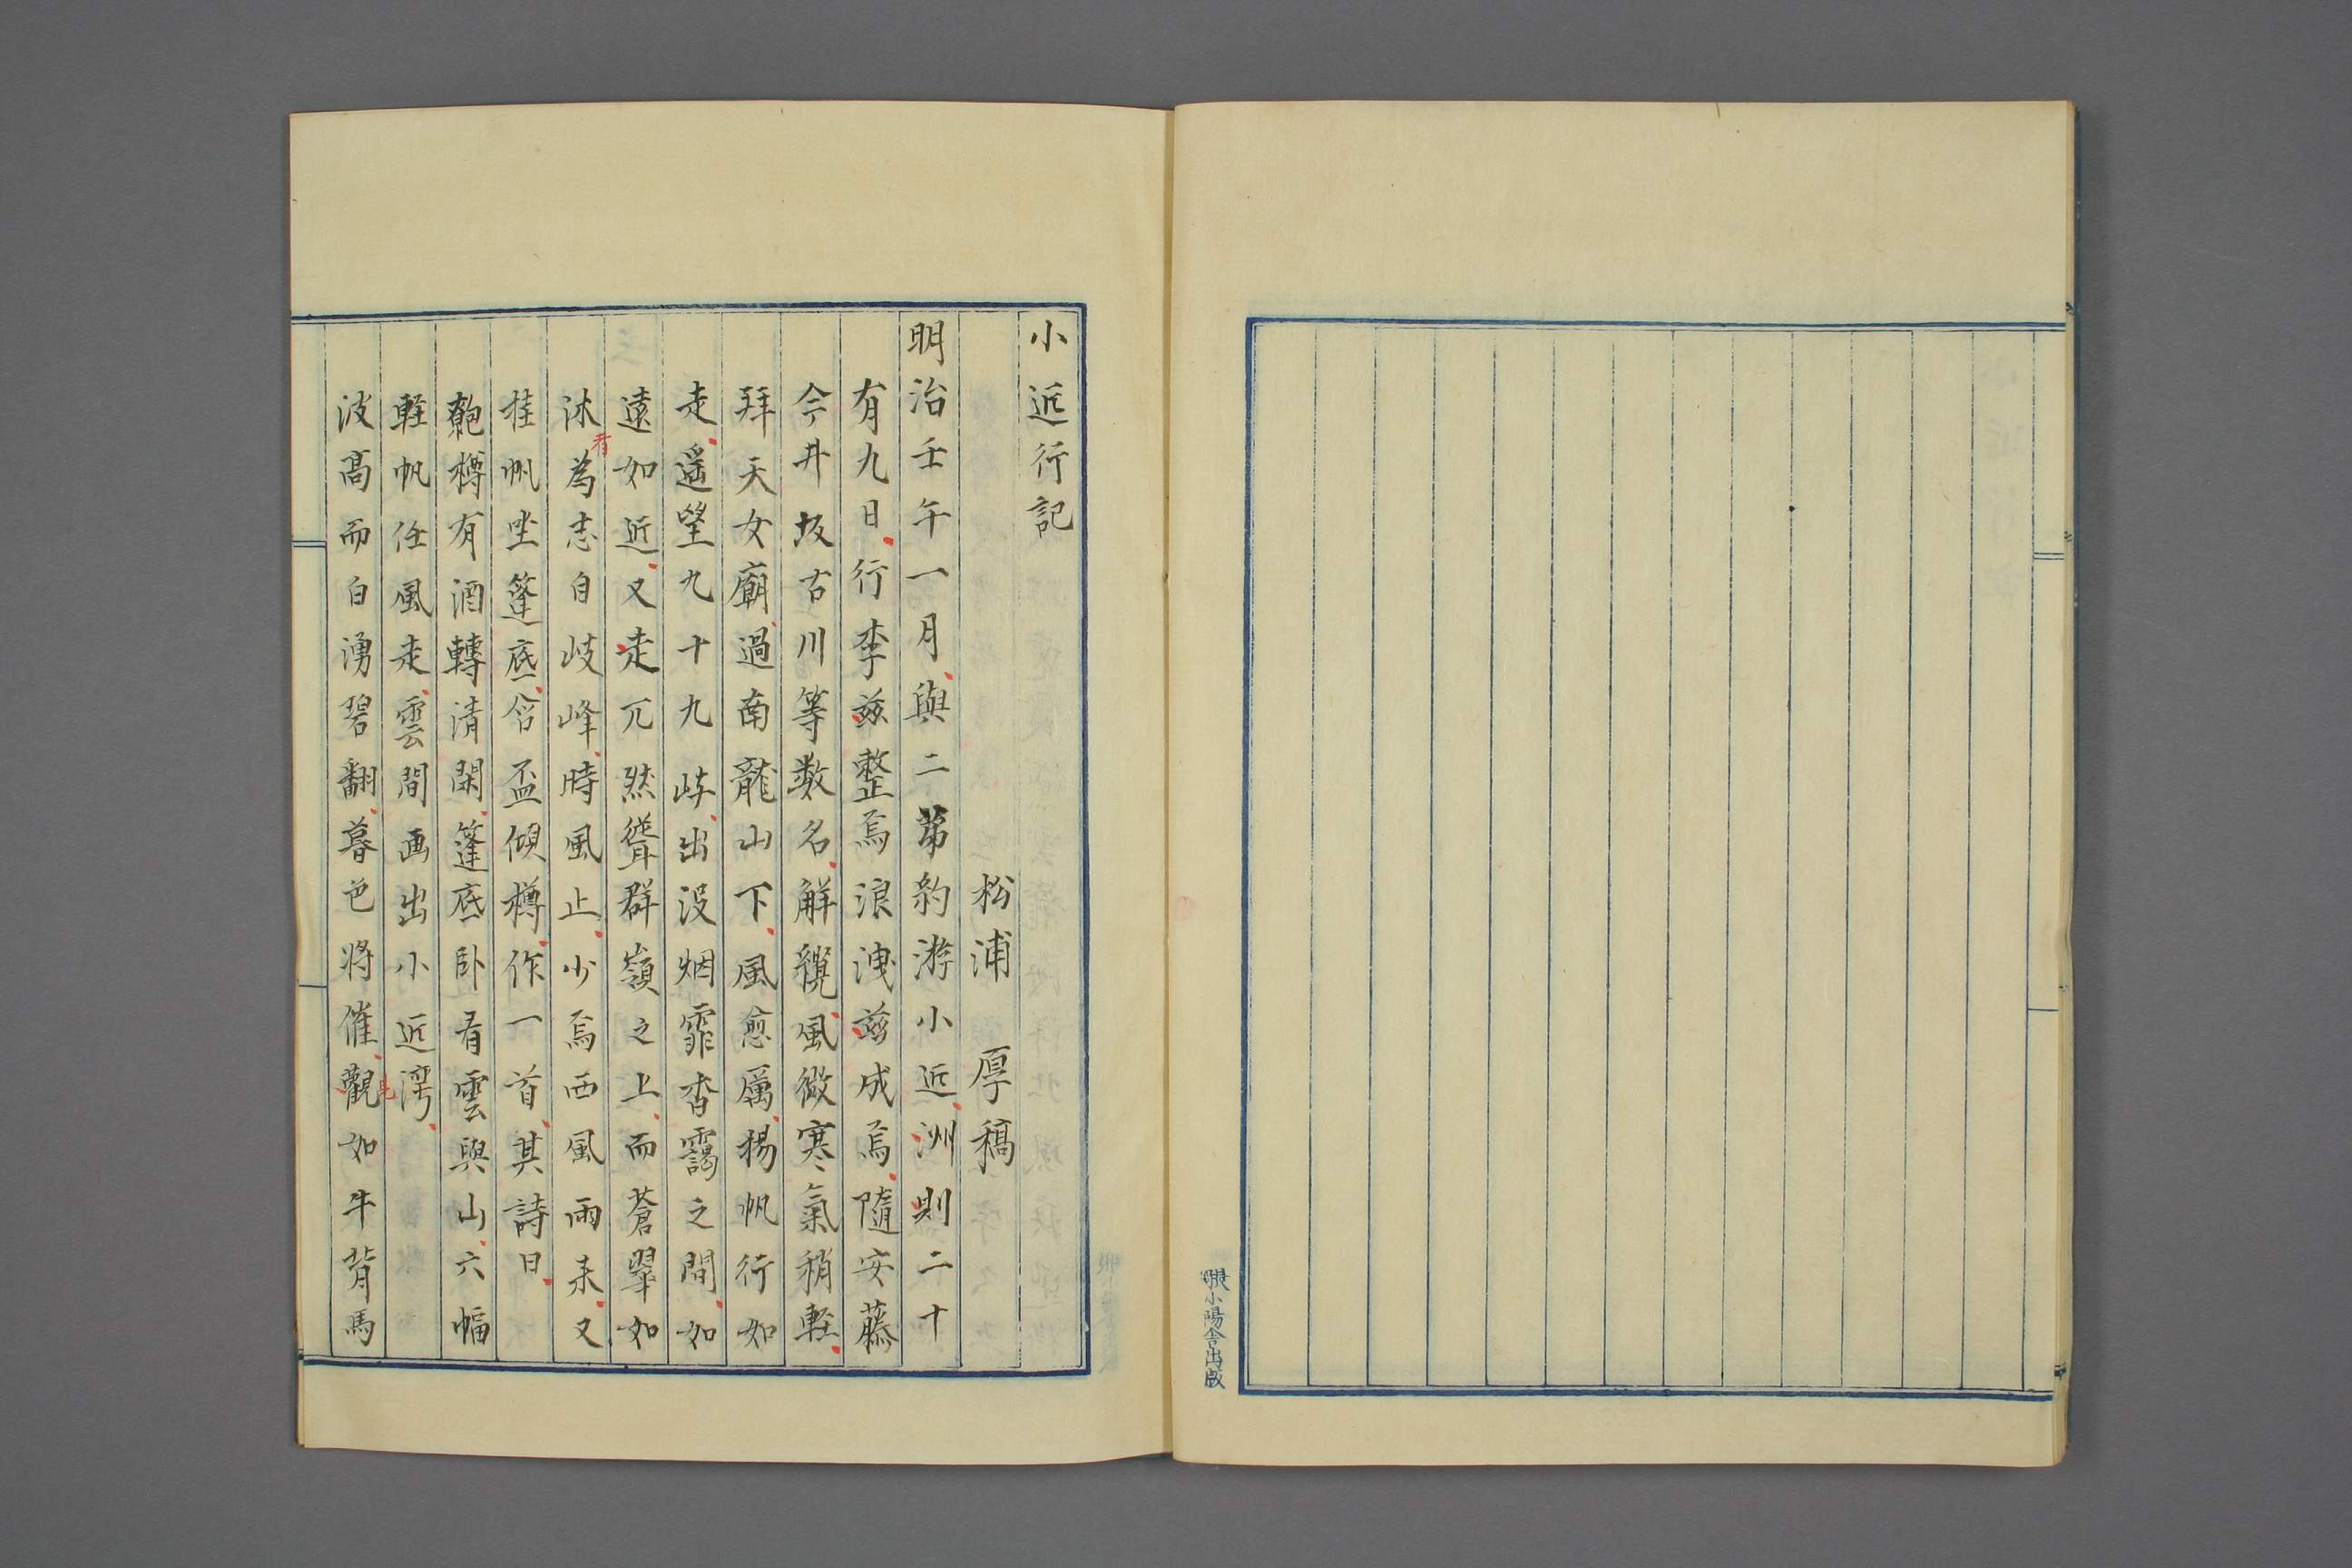 小近行記
松浦 厚稿
明治壬午一月與二弟約游小近洲則二十
有九日行李茲整焉浪洩茲成焉隨安藤
今井坂古川等数名解纜風微寒氣稍軽
拜天女廟過南龍山下風愈厲揚帆行如
走遥望九十九㠀出没烟霏杳靄之間如
遠如近又走兀然聳群嶺之上而蒼翠如
沐者為志自岐峰時風止少焉西風雨来又
挂帆坐篷底含盃傾樽作一首其詩曰
匏樽有酒轉清閑篷底卧看雲與山六幅
軽帆任風走雲間画出小近湾
波高而白湧碧翻暮色将催觀見如牛背馬
小陽舎出版